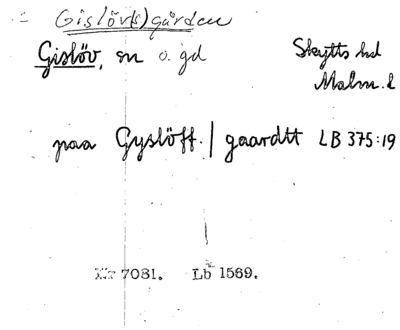 Gislöv(s)gården
Gislöv, sn o. gd Skytts hd
Malm. l
paa Gyslöff | gaardtt LB 375:19
Nr 7081. Lb 1569.